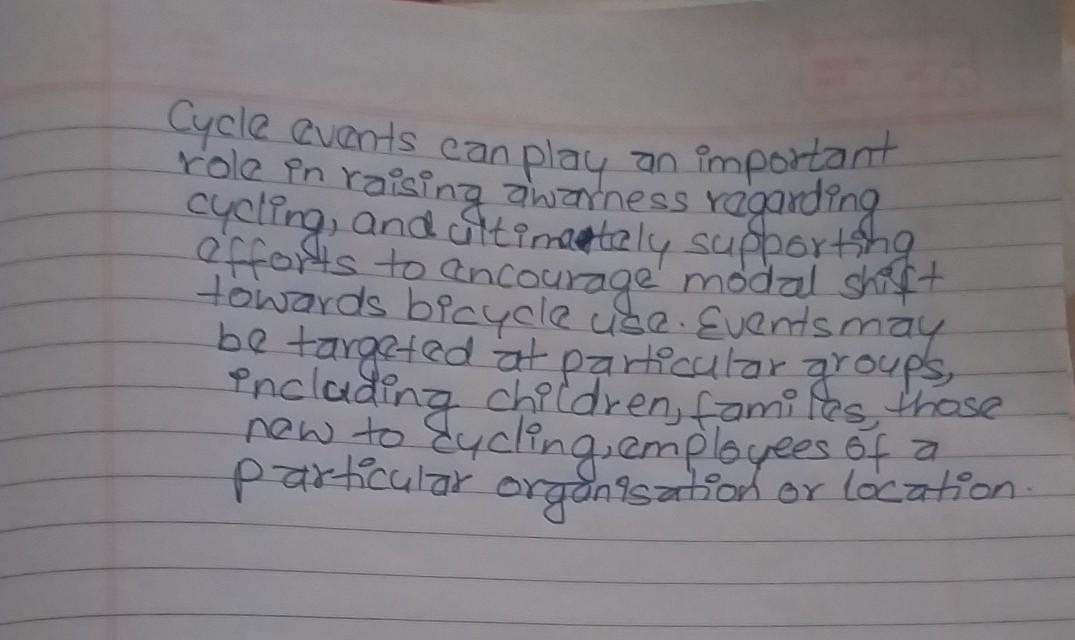 Cycle events can play an important
role in raising awarness regarding
cycling, and ultimately supporting
efforts to encourage modal shift
towards bicycle use. Events may
be targeted at particular groups,
including children, familes, those
new to cycling, employees of a
particular organisation or location.